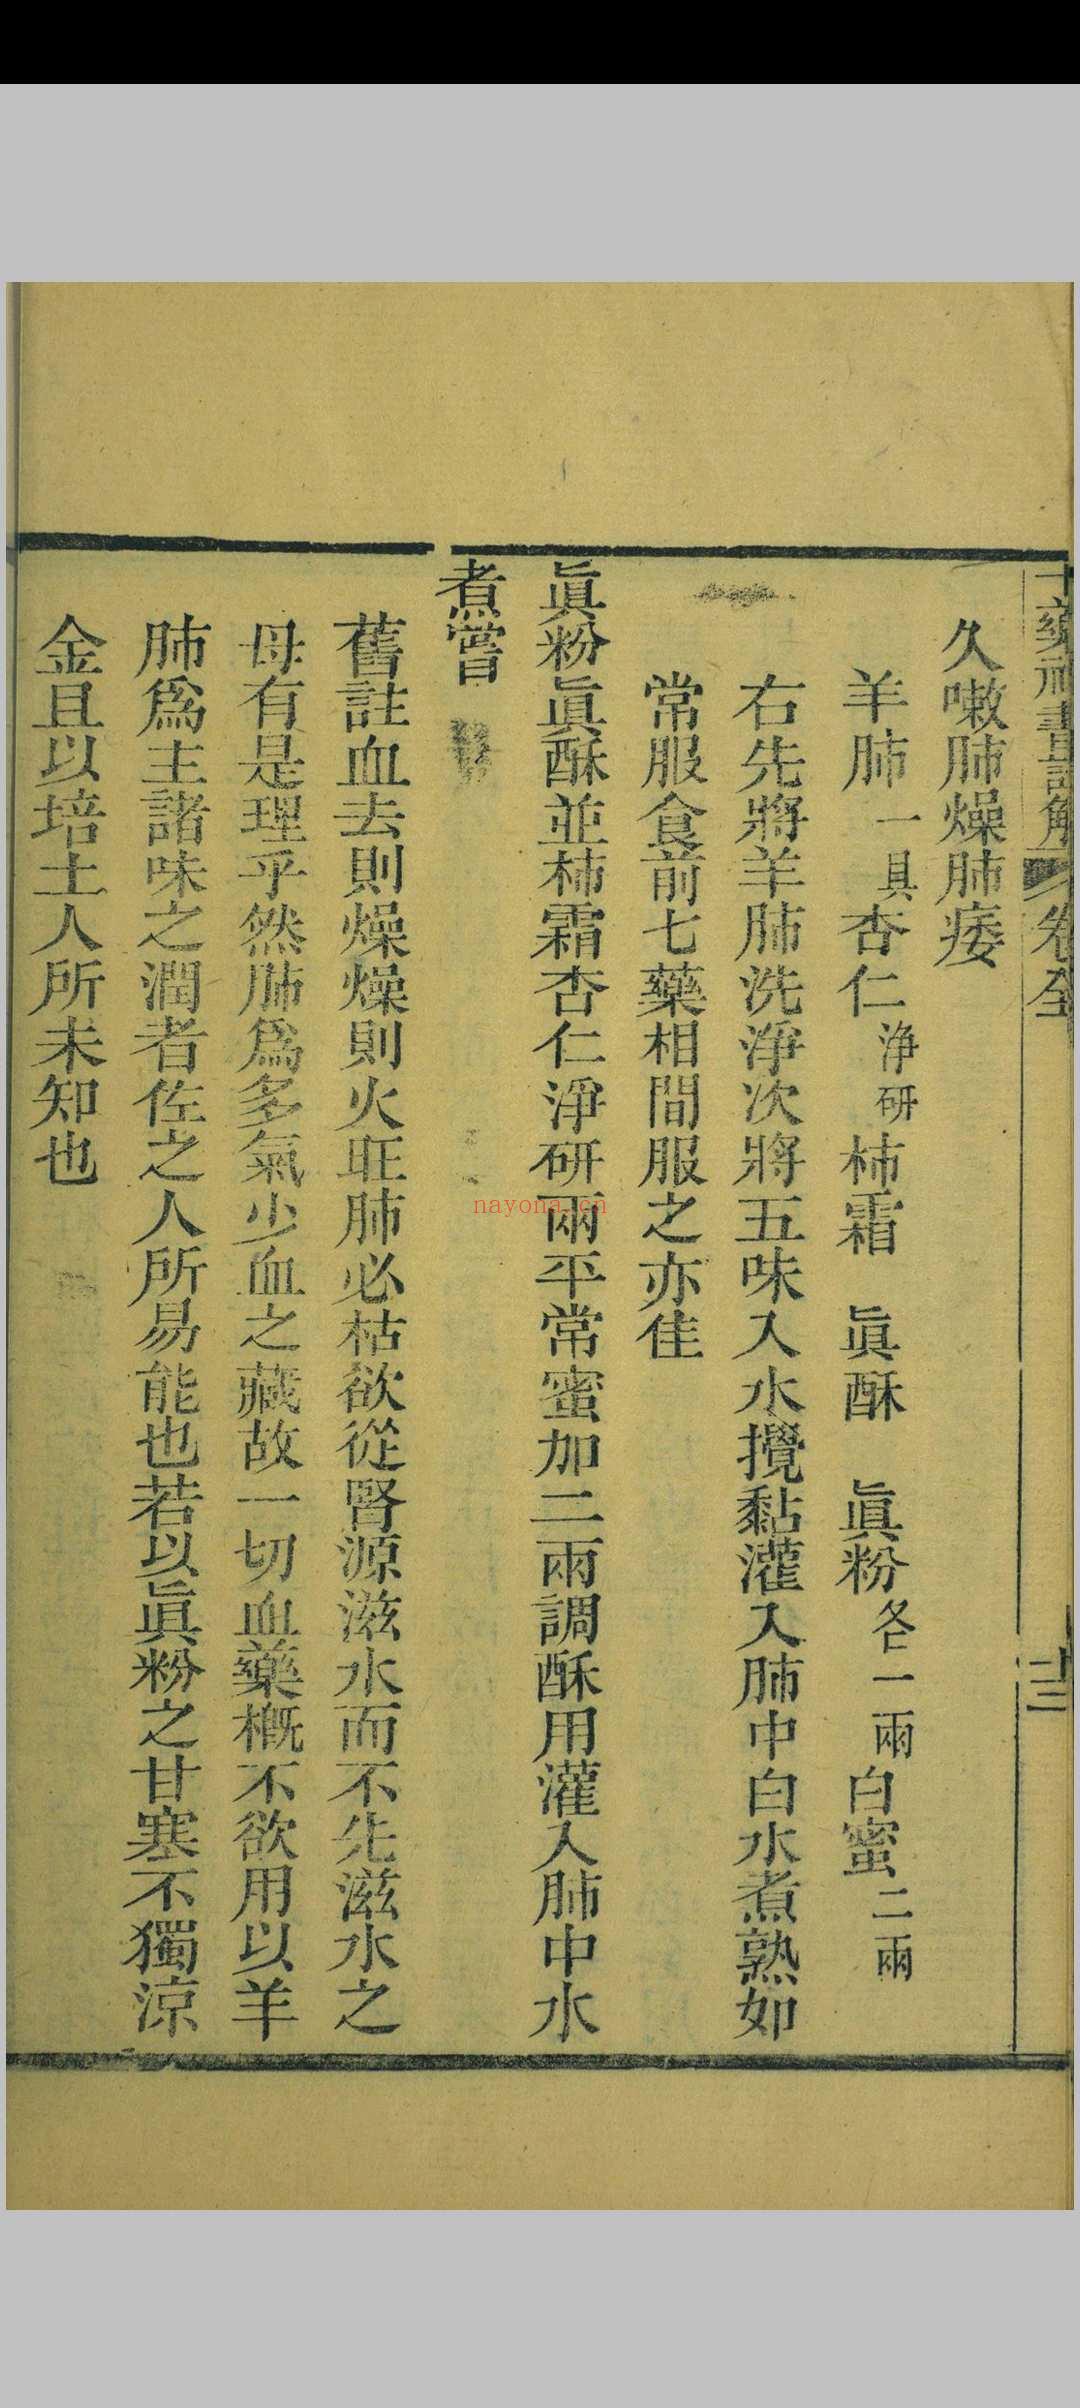 十藥神書註解 卷全 十三
久嗽肺燥肺痿
羊肺一具杏仁淨研柿霜 眞酥 眞粉各一兩白蜜二兩
右先將羊肺洗淨次將五味入水攪黏灌入肺中白水煮熟如
常服食前七藥相間服之亦佳
眞粉眞酥並柿霜杏仁淨研兩平常蜜加二兩調酥用灌入肺中水
煮嘗
舊註血去則燥燥則火旺肺必枯欲從腎源滋水而不先滋水之
母有是理乎然肺爲多氣少血之藏故一切血藥槪不欲用以羊
肺爲主諸味之潤者佐之人所易能也若以眞粉之甘塞不獨涼
金且以培土人所未知也
nayona.cn